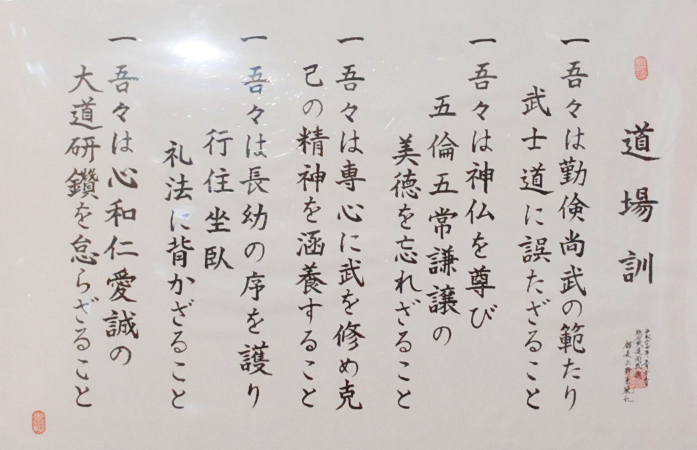 道場訓
一吾々は勤倹尚武の範たり
武士道に誤たざること
一吾々は神仏を尊び
五倫五常謙譲の
美徳を忘れざること
一吾々は専心に武を修め克
己の精神を涵養すること
一吾々は長幼の序を護り
行住坐臥
礼法に背かざること
一吾々は心和仁愛誠の
大道研鑽を怠らざること